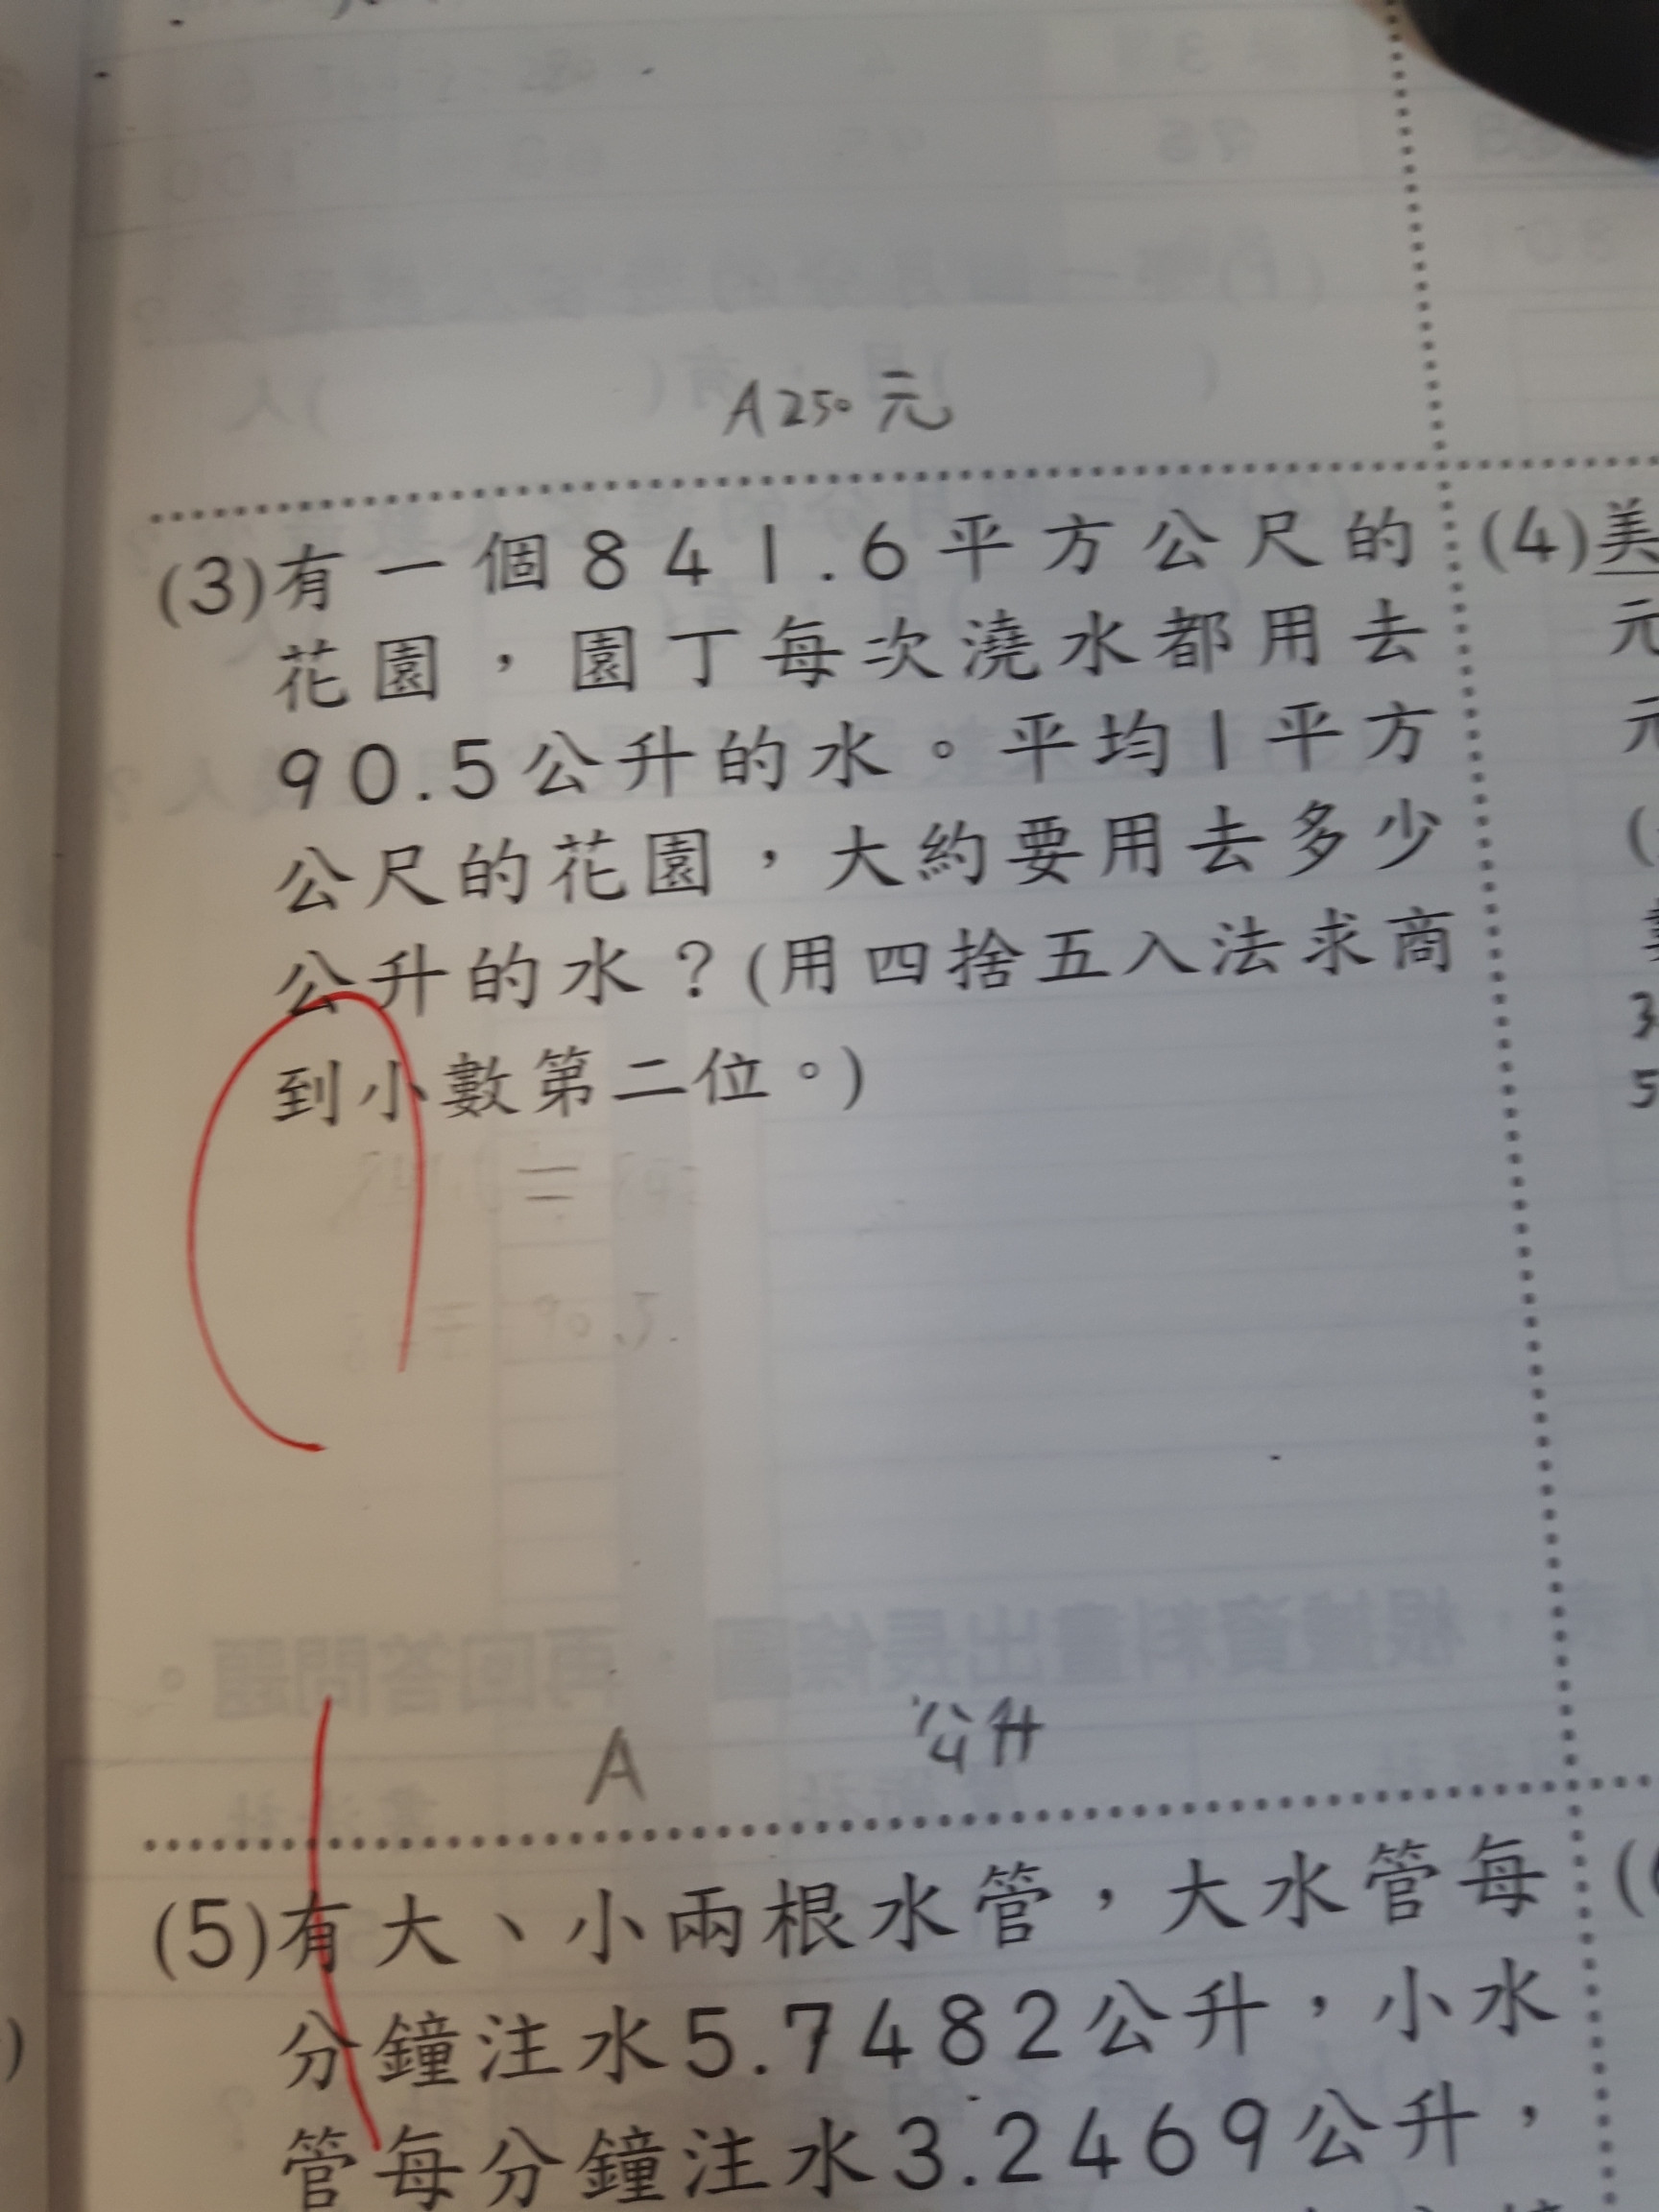 A 250 元
(3)有一個841.6平方公尺的
花園，園丁每次澆水都用去
90.5公升的水。平均1平方
公尺的花園，大約要用去多少
公升的水？(用四捨五入法求商
到小數第二位。)
A 公升
(4)美
元
元
(5)有大、小兩根水管，大水管每
分鐘注水5.7482公升，小水
管每分鐘注水3.2469公升，